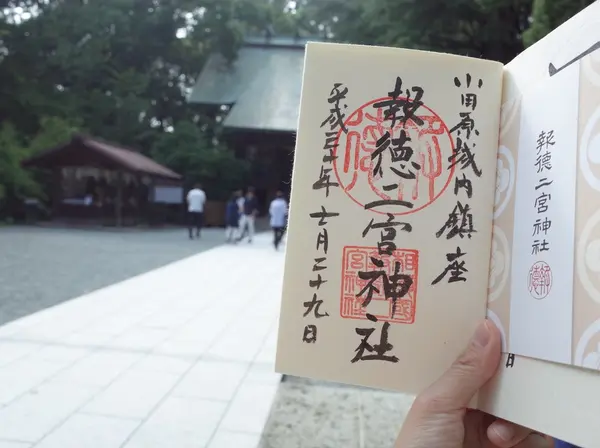 小田原城内鎮座
報徳二宮神社
平成三十年七月二十九日
報徳二宮神社